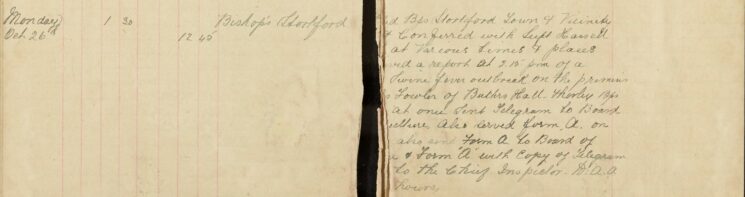 Monday 1 30 Bishops Stortford
Oct 26 12 45
d Bps Stortford Town & Vicinity
& Conferred with Supt Hassell
at Various times & places
ved a report at 2.15 pm of a
Swine fever outbreak on the premises
Fowler of Butlers Hall. Thorley Bps
at once Sent Telegram to Board
culture, Also Served form, A. on
also sent Form A to Board of
& Form "A" with Copy of Telegram
to the Chief Inspector. D.A.A
hours